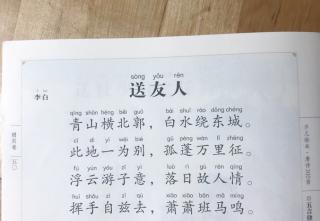 sòng yǒu rén
送友人
李白
qīng shān héng běi guō bái shuǐ rào dōng chéng
青山横北郭，白水绕东城。
cǐ dì yì wéi bié gū péng wàn lǐ zhēng
此地一为别，孤蓬万里征。
fú yún yóu zǐ yì luò rì gù rén qíng
浮云游子意，落日故人情。
huī shǒu zì zī qù xiāo xiāo bān mǎ míng
挥手自兹去，萧萧班马鸣。